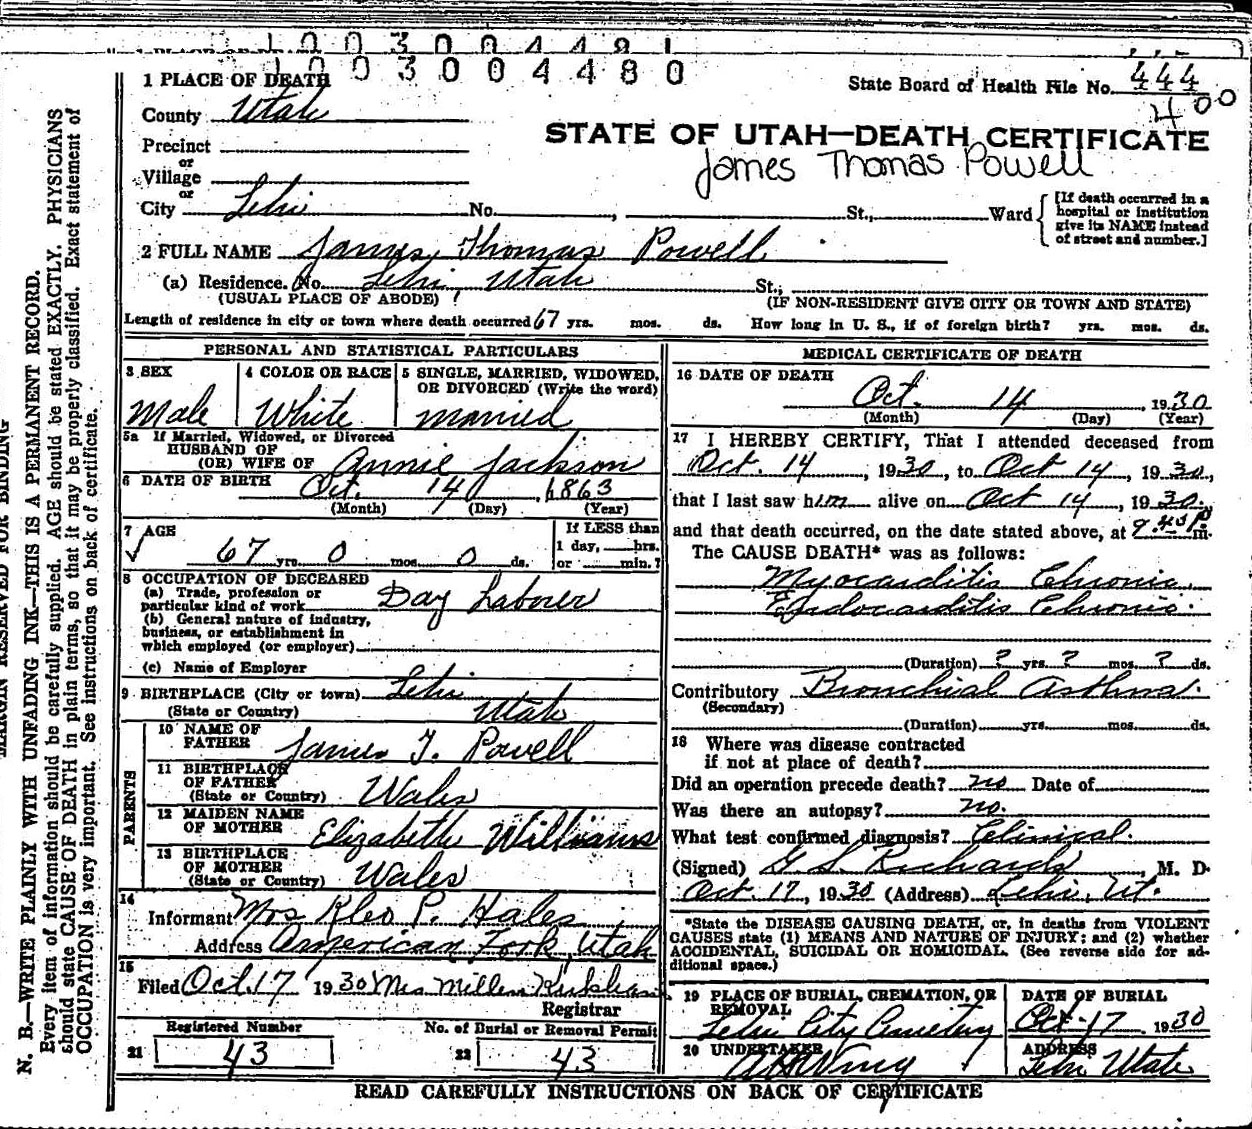 1003004481
1003004480
1 PLACE OF DEATH
State Board of Health File No. 444
400
County Utah
STATE OF UTAH—DEATH CERTIFICATE
James Thomas Powell
Precinct
or
Village
or
City Lehi No. , St., Ward
[If death occurred in a
hospital or institution
give its NAME instead
of street and number.]
2 FULL NAME James Thomas Powell
(a) Residence. No. Lehi, Utah St.;
(USUAL PLACE OF ABODE) (IF NON-RESIDENT GIVE CITY OR TOWN AND STATE)
Length of residence in city or town where death occurred 67 yrs. mos. ds. How long in U. S., if of foreign birth? yrs. mos. ds.
PERSONAL AND STATISTICAL PARTICULARS
3 SEX
Male
4 COLOR OR RACE
White
5 SINGLE, MARRIED, WIDOWED,
OR DIVORCED (Write the word)
married
5a If Married, Widowed, or Divorced
HUSBAND OF
(OR) WIFE OF Annie Jackson
6 DATE OF BIRTH Oct. 14, 1863
(Month) (Day) (Year)
7 AGE
67 yrs. 0 mos. 0 ds.
If LESS than
1 day, hrs.
or min.?
8 OCCUPATION OF DECEASED
(a) Trade, profession or
particular kind of work Day Laborer
(b) General nature of industry,
business, or establishment in
which employed (or employer)
(c) Name of Employer
9 BIRTHPLACE (City or town) Lehi
(State or Country) Utah
PARENTS
10 NAME OF
FATHER James T. Powell
11 BIRTHPLACE
OF FATHER
(State or Country) Wales
12 MAIDEN NAME
OF MOTHER Elizabeth Williams
13 BIRTHPLACE
OF MOTHER
(State or Country) Wales
14
Informant Mrs Kleo P. Hales
Address American Fork, Utah
15
Filed Oct. 17 1930 Mrs
Registrar
Registered Number
21 43
No. of Burial or Removal Permit
22 43
MEDICAL CERTIFICATE OF DEATH
16 DATE OF DEATH
Oct. 14, 1930
(Month) (Day) (Year)
17 I HEREBY CERTIFY, That I attended deceased from
Oct. 14, 1930, to Oct 14, 1930,
that I last saw him alive on Oct 14, 1930.
and that death occurred, on the date stated above, at 9.40 P m.
The CAUSE DEATH* was as follows:
Myocarditis Chronic.
Endocarditis Chronic.
(Duration) ? yrs. ? mos. ? ds.
Contributory Bronchial Asthma.
(Secondary)
(Duration) yrs. mos. ds.
18 Where was disease contracted
if not at place of death?
Did an operation precede death? no Date of
Was there an autopsy? no.
What test confirmed diagnosis? Clinical.
(Signed) G S. Richards, M. D.
Oct. 17, 1930 (Address) Lehi, Ut.
*State the DISEASE CAUSING DEATH, or, in deaths from VIOLENT
CAUSES state (1) MEANS AND NATURE OF INJURY; and (2) whether
ACCIDENTAL, SUICIDAL OR HOMICIDAL. (See reverse side for ad-
ditional space.)
19 PLACE OF BURIAL, CREMATION, OR
REMOVAL
Lehi City Cemetery
DATE OF BURIAL
Oct-17 1930
20 UNDERTAKER
ADDRESS
Lehi Utah
READ CAREFULLY INSTRUCTIONS ON BACK OF CERTIFICATE
MARGIN RESERVED FOR BINDING
N. B.—WRITE PLAINLY WITH UNFADING INK—THIS IS A PERMANENT RECORD.
Every item of information should be carefully supplied. AGE should be stated EXACTLY. PHYSICIANS
should state CAUSE OF DEATH in plain terms, so that it may be properly classified. Exact statement of
OCCUPATION is very important. See instructions on back of certificate.